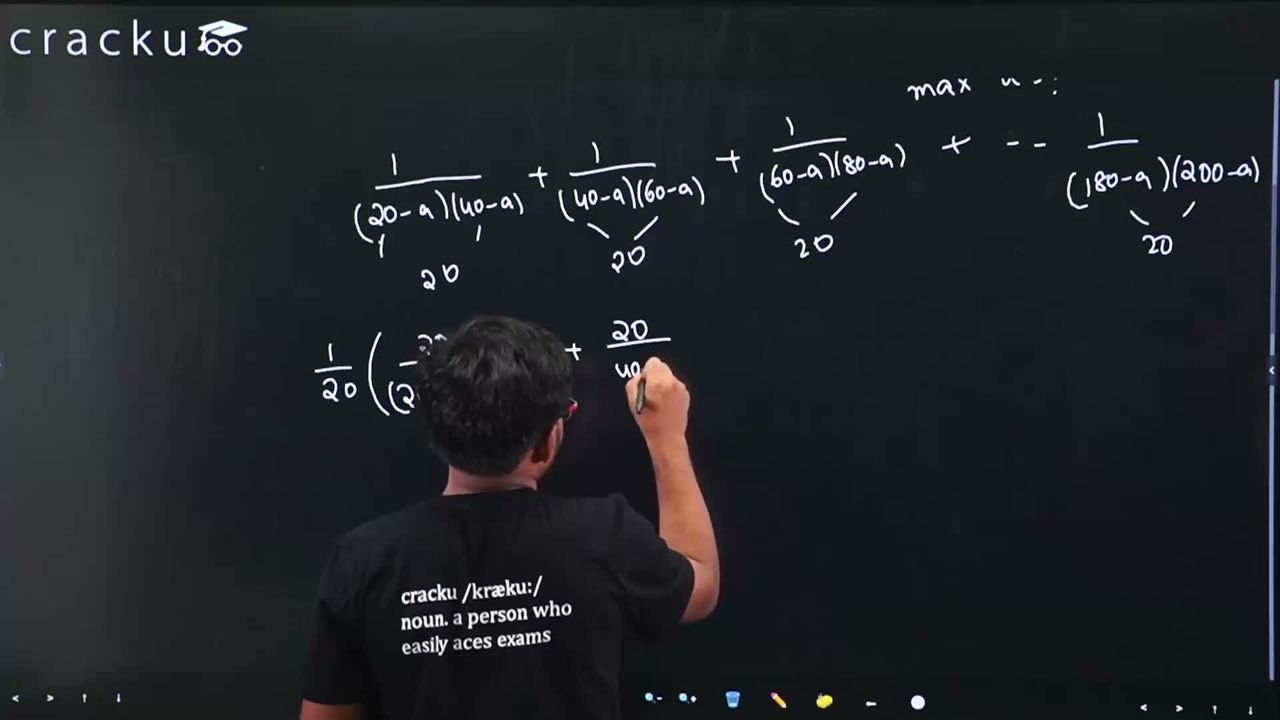 cracku
max
1/((20-a)(40-a)) + 1/((40-a)(60-a)) + 1/((60-a)(80-a)) + -- 1/((180-a)(200-a))
20 20 20 20
1/20 ( + 20/
cracku /kræku:/
noun. a person who
easily aces exams